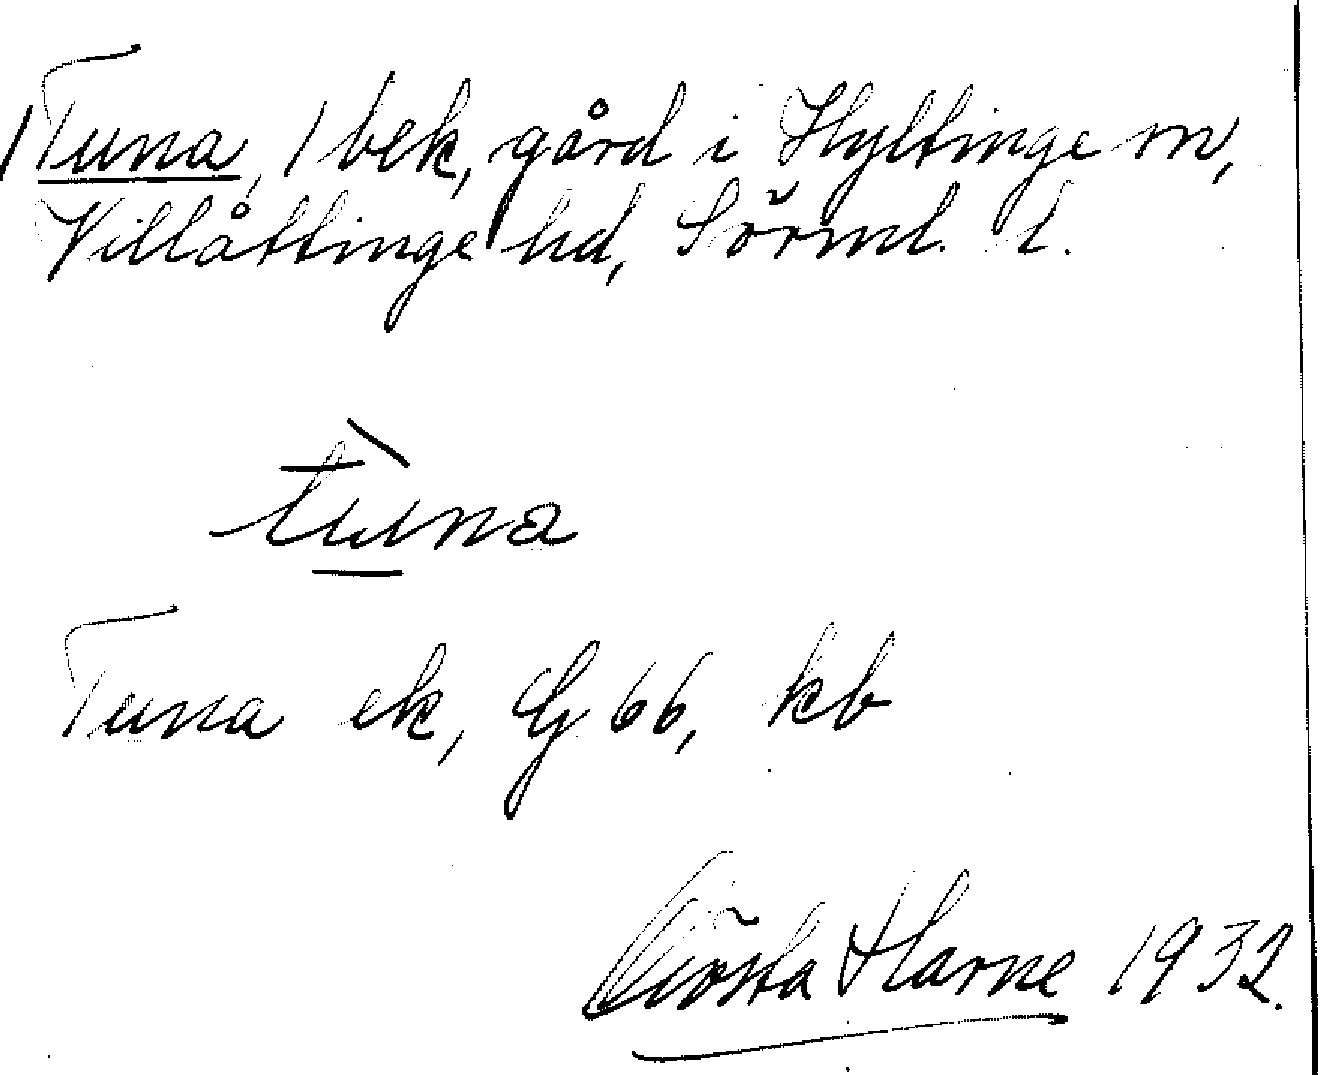 Tuna, 1 bek, gård i Hyltinge sn,
Villåttinge hd, Sörml. l.
tùna
Tuna ek, G 66, kb
Gösta Harne 1932.